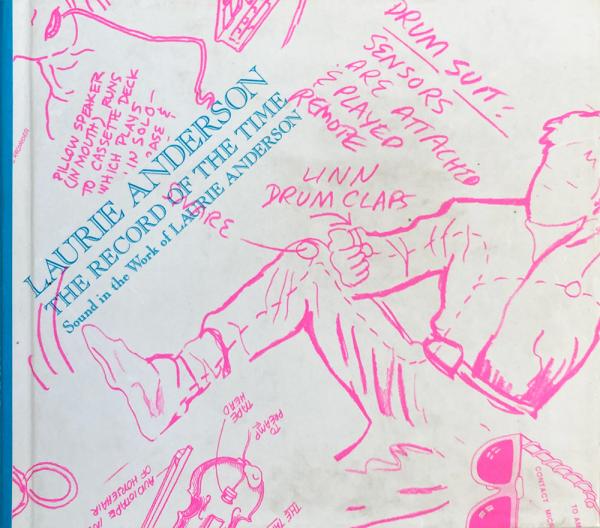 LAURIE ANDERSON
THE RECORD OF THE TIME
Sound in the Work of LAURIE ANDERSON
PILLOW SPEAKER
(IN MOUTH) RUNS
TO CASSETTE DECK
WHICH PLAYS
IN SOLO—
DRUM SUIT:
SENSORS
ARE ATTACHED
PLAYED
REMOTE
LINN
DRUM CLAPS
TAPE
HEAD
TO
PREAMP
AUDIOTAPE
OF HORSEHAIR
CONTACT MIC